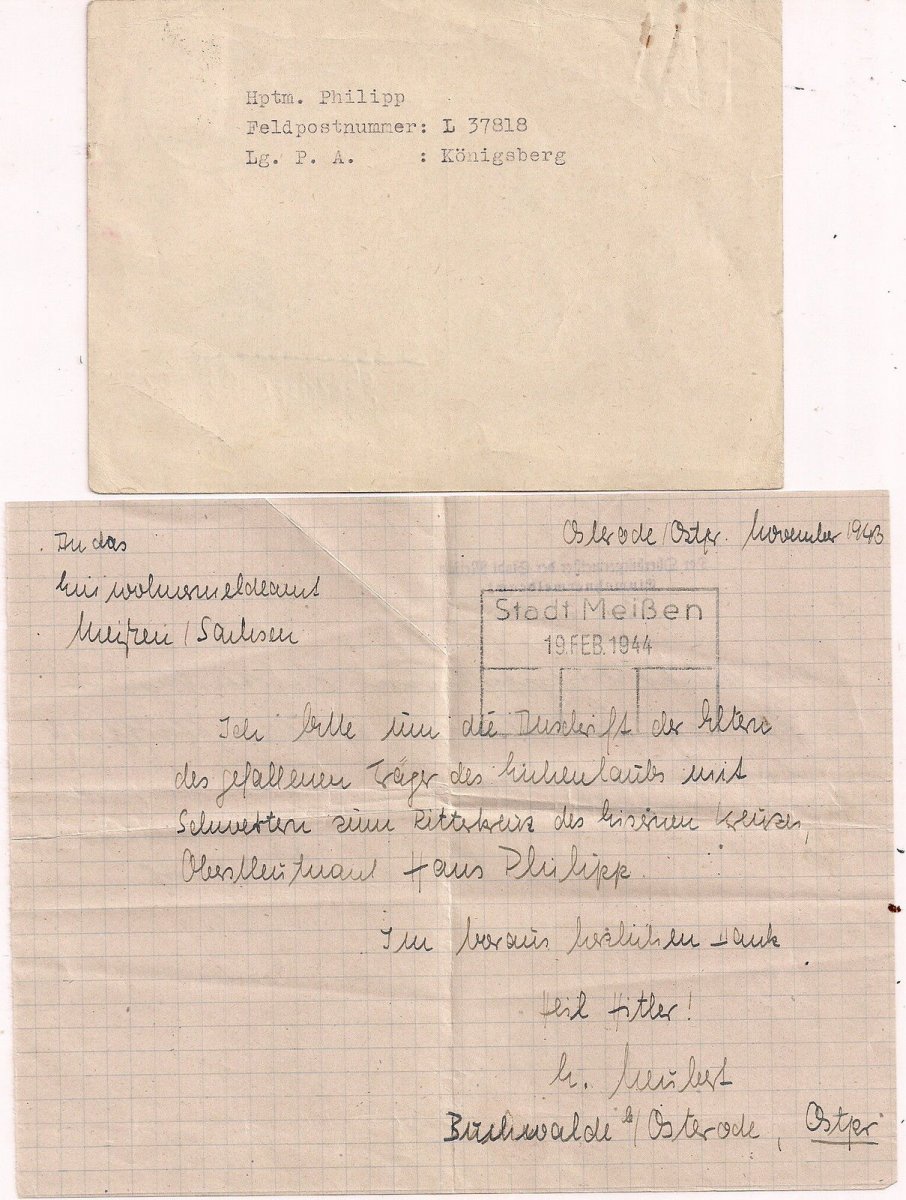 Hptm. Philipp
Feldpostnummer: L 37818
Lg. P. A. : Königsberg
Osterode/Ostpr. November 1943
An das
Einwohnermeldeamt
Meißen / Sachsen
Stadt Meißen
19. FEB. 1944
Ich bitte um die Anschrift der Eltern
des gefallenen Träger des Eichenlaubs mit
Schwertern zum Ritterkreuz des Eisernen Kreuzes,
Oberstleutnant Hans Philipp.
Im voraus herzlichen Dank
Heil Hitler!
Buchwalde b/Osterode, Ostpr